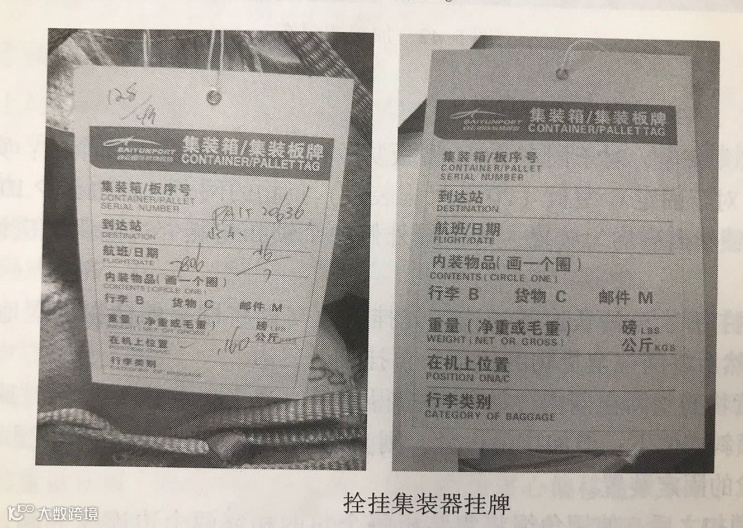 128
BAIYUNPORT
集装箱/集装板牌
CONTAINER/PALLET TAG
集装箱/板序号
CONTAINER/PALLET
SERIAL NUMBER
到达站
DESTINATION
航班/日期
FLIGHT/DATE
内装物品(画一个圈)
CONTENTS (CIRCLE ONE)
行李 B 货物 C 邮件 M
重量(净重或毛重) 磅 LBS
公斤 KGS
在机上位置
160
行李类别
CATEGORY OF BAGGAGE
BAIYUNPORT
集装箱/集装板牌
CONTAINER/PALLET TAG
集装箱/板序号
CONTAINER/PALLET
SERIAL NUMBER
到达站
DESTINATION
航班/日期
FLIGHT/DATE
内装物品(画一个圈)
CONTENTS (CIRCLE ONE)
行李 B 货物 C 邮件 M
重量(净重或毛重) 磅 LBS
WEIGHT (NET OR GROSS) 公斤 KGS
在机上位置
POSITION ONA/C
行李类别
CATEGORY OF BAGGAGE
拴挂集装器挂牌
大数跨境